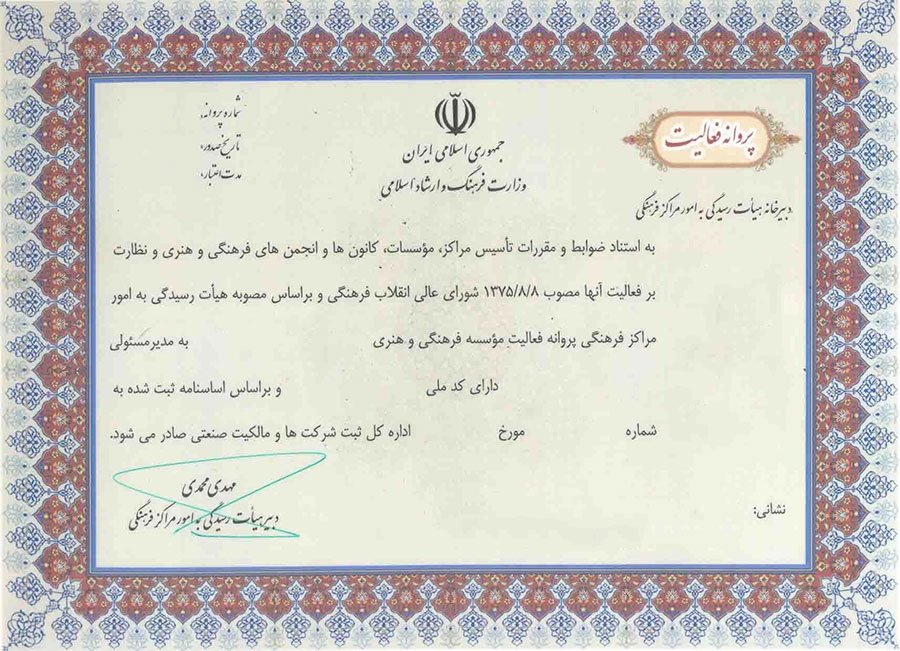 پروانه فعالیت
جمهوری اسلامی ایران
وزارت فرهنگ و ارشاد اسلامی
شماره پروانه:
تاریخ صدور:
مدت اعتبار:
دبیرخانه هیأت رسیدگی به امور مراکز فرهنگی
به استناد ضوابط و مقررات تأسیس مراکز، مؤسسات، کانون ها و انجمن های فرهنگی و هنری و نظارت
بر فعالیت آنها مصوب ۱۳۷۵/۸/۸ شورای عالی انقلاب فرهنگی و براساس مصوبه هیأت رسیدگی به امور
مراکز فرهنگی پروانه فعالیت مؤسسه فرهنگی و هنری به مدیرمسئولی
دارای کد ملی و براساس اساسنامه ثبت شده به
شماره مورخ اداره کل ثبت شرکت ها و مالکیت صنعتی صادر می شود.
مهدی محمدی
دبیر هیأت رسیدگی به امور مراکز فرهنگی
نشانی: